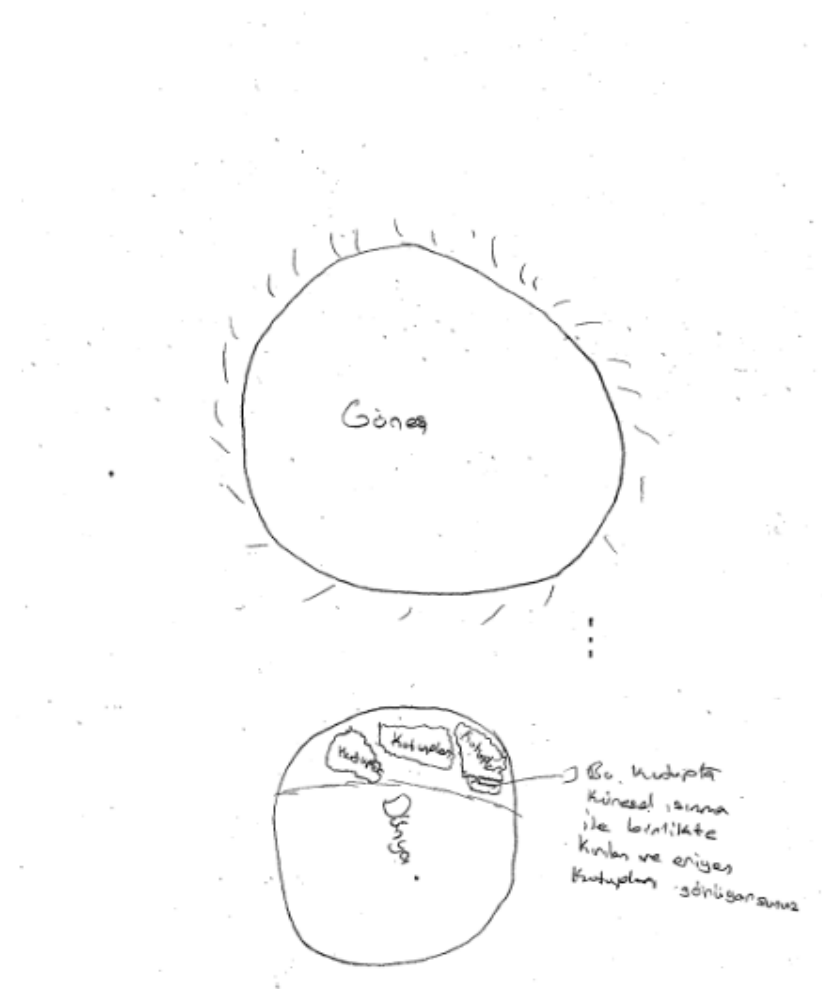 Güneş
Kutuplar
Kutupları
Dünya
Bu kutupta
Küresel ısınma
ile birlikte
Kırılan ve eriyen
Kutupları görüyorsunuz